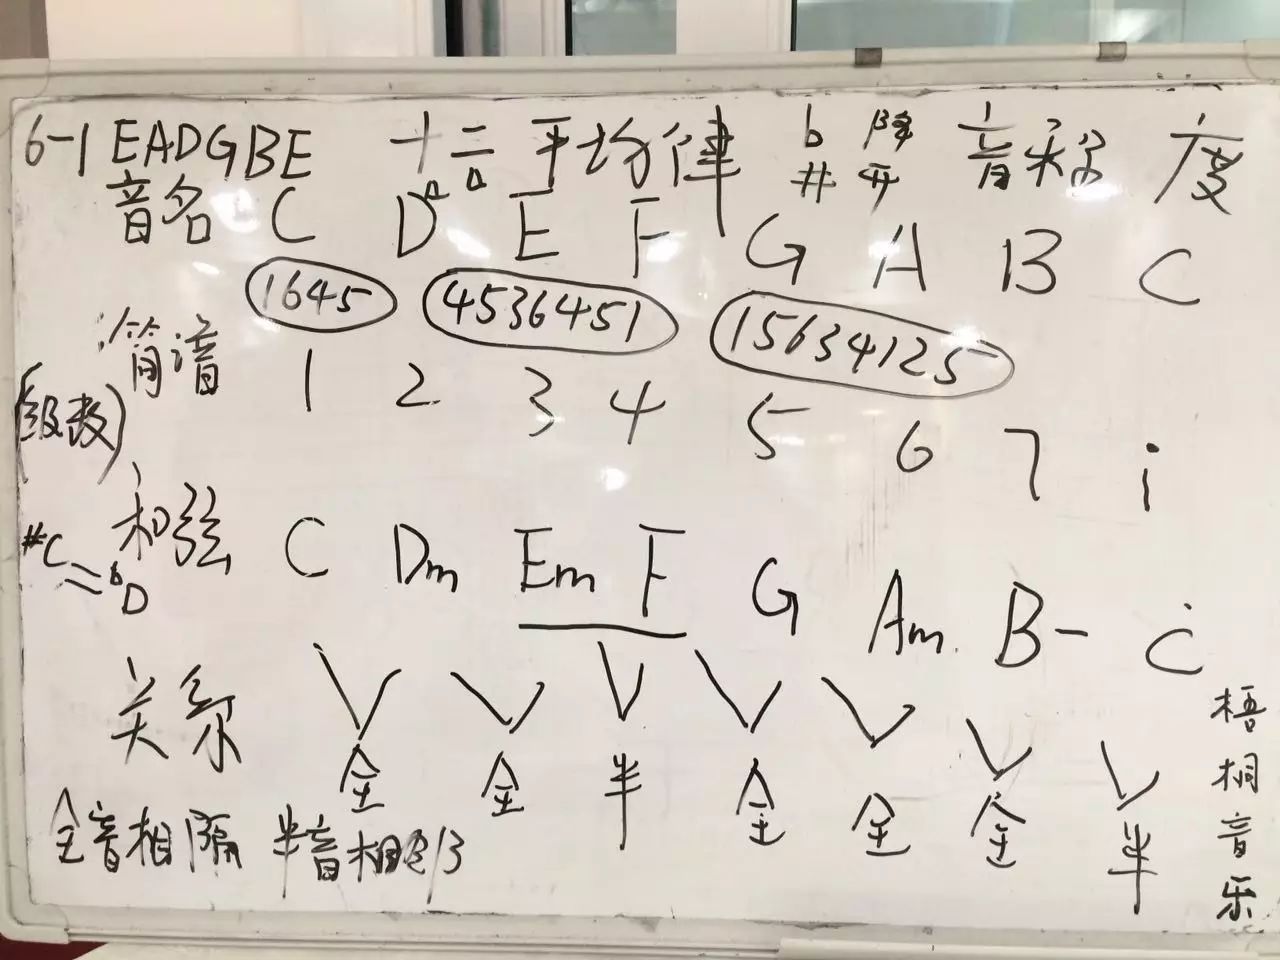 6-1 EADGBE 十二平均律 b 降 # 升 音称 度
音名 C D E F G A B C
1645 4536451 15634125
简谱 1 2 3 4 5 6 7 i
(级数)
和弦 C Dm Em F G Am B- C
#C = bD
关系 全 全 半 全 全 全 半
全音相隔 半音相邻
梧桐音乐